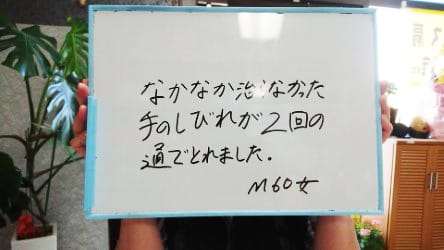 なかなか治らなかった
手のしびれが2回の
通でとれました。
M60女